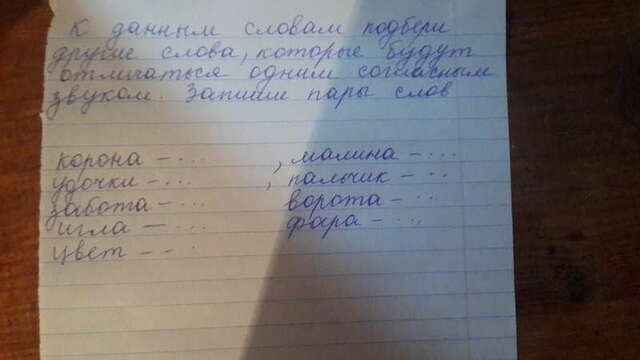 К данным словам подбери
другие слова, которые будут
отличаться одним согласным
звуком. Запиши пары слов
корона - ... , малина - ...
удочки - ... , пальчик - ...
забота - ... ворота - ...
игла - ... фара - ...,
цвет - ...